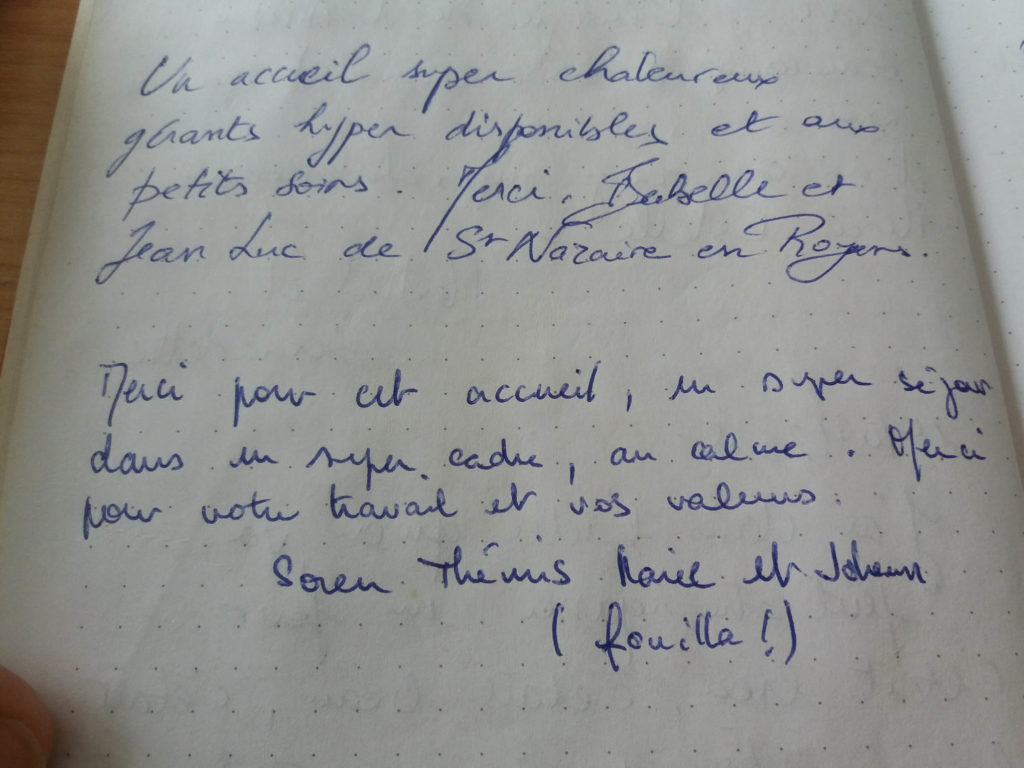 Un accueil super chaleureux
gérants hyper disponibles et aux
petits soins. Merci. Isabelle et
Jean Luc de St Nazaire en Royans.
Merci pour cet accueil, un super séjour
dans un super cadre, au calme. Merci
pour votre travail et vos valeurs.
Soren Thémis Marie et Johann
(fouilla!)